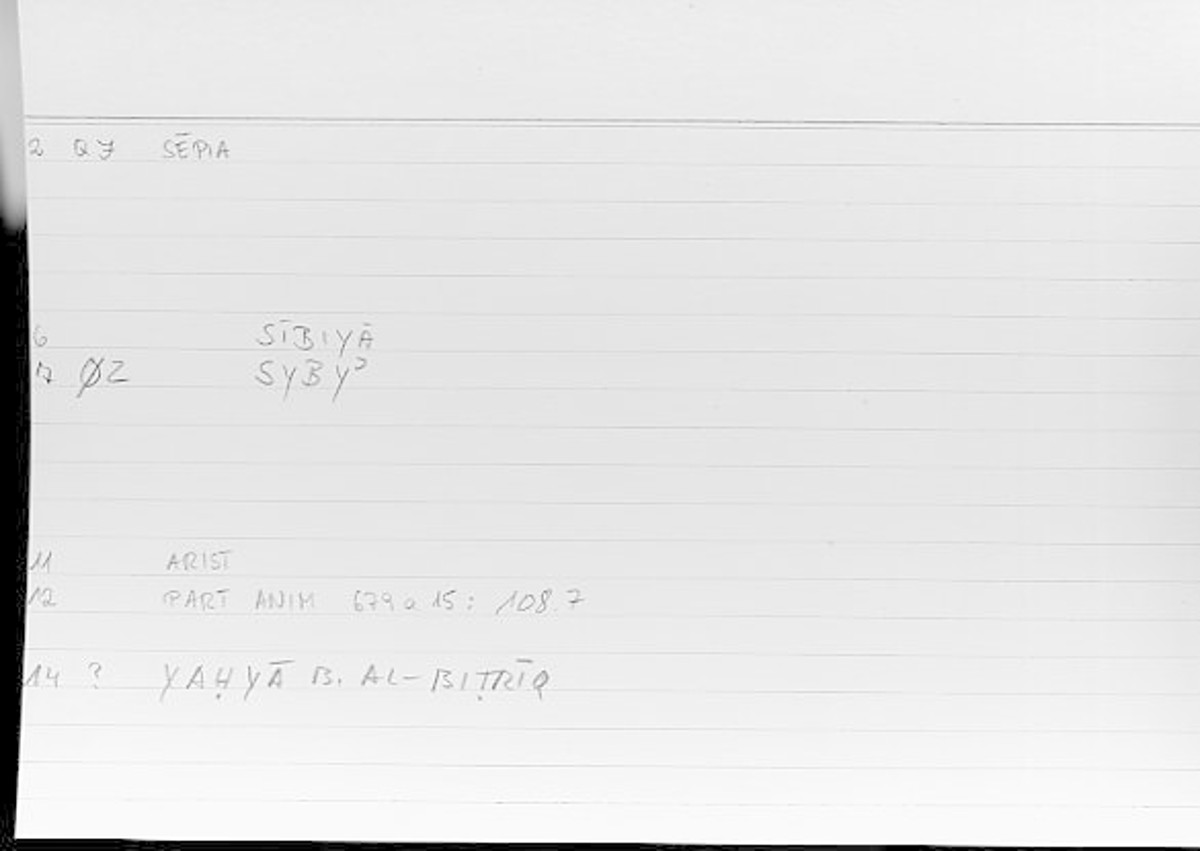 2 Q7 SĒPIA
6 SĪBIYĀ
7 ØZ SYBYʾ
11 ARIST
12 PART ANIM 679 a 15 : 108.7
14 ? YAḤYĀ B. AL-BIṬRĪQ